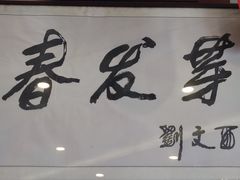 春发芽
劉文西